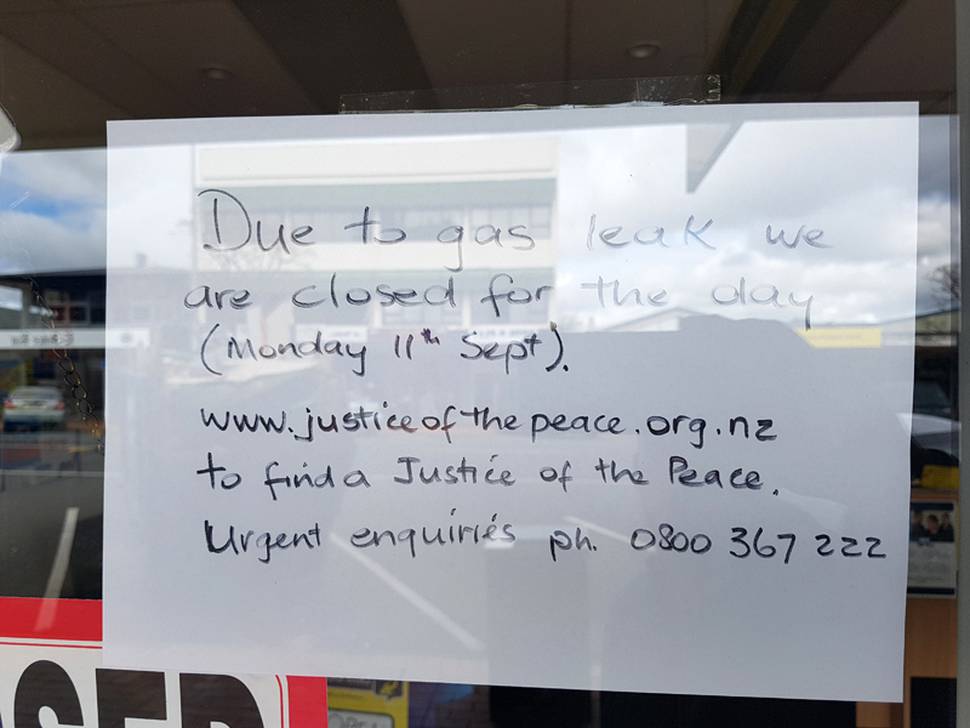 Due to gas leak we
are closed for the day
(Monday 11th Sept).
www.justiceofthepeace.org.nz
to find a Justice of the Peace.
Urgent enquiries ph. 0800 367 222
SED